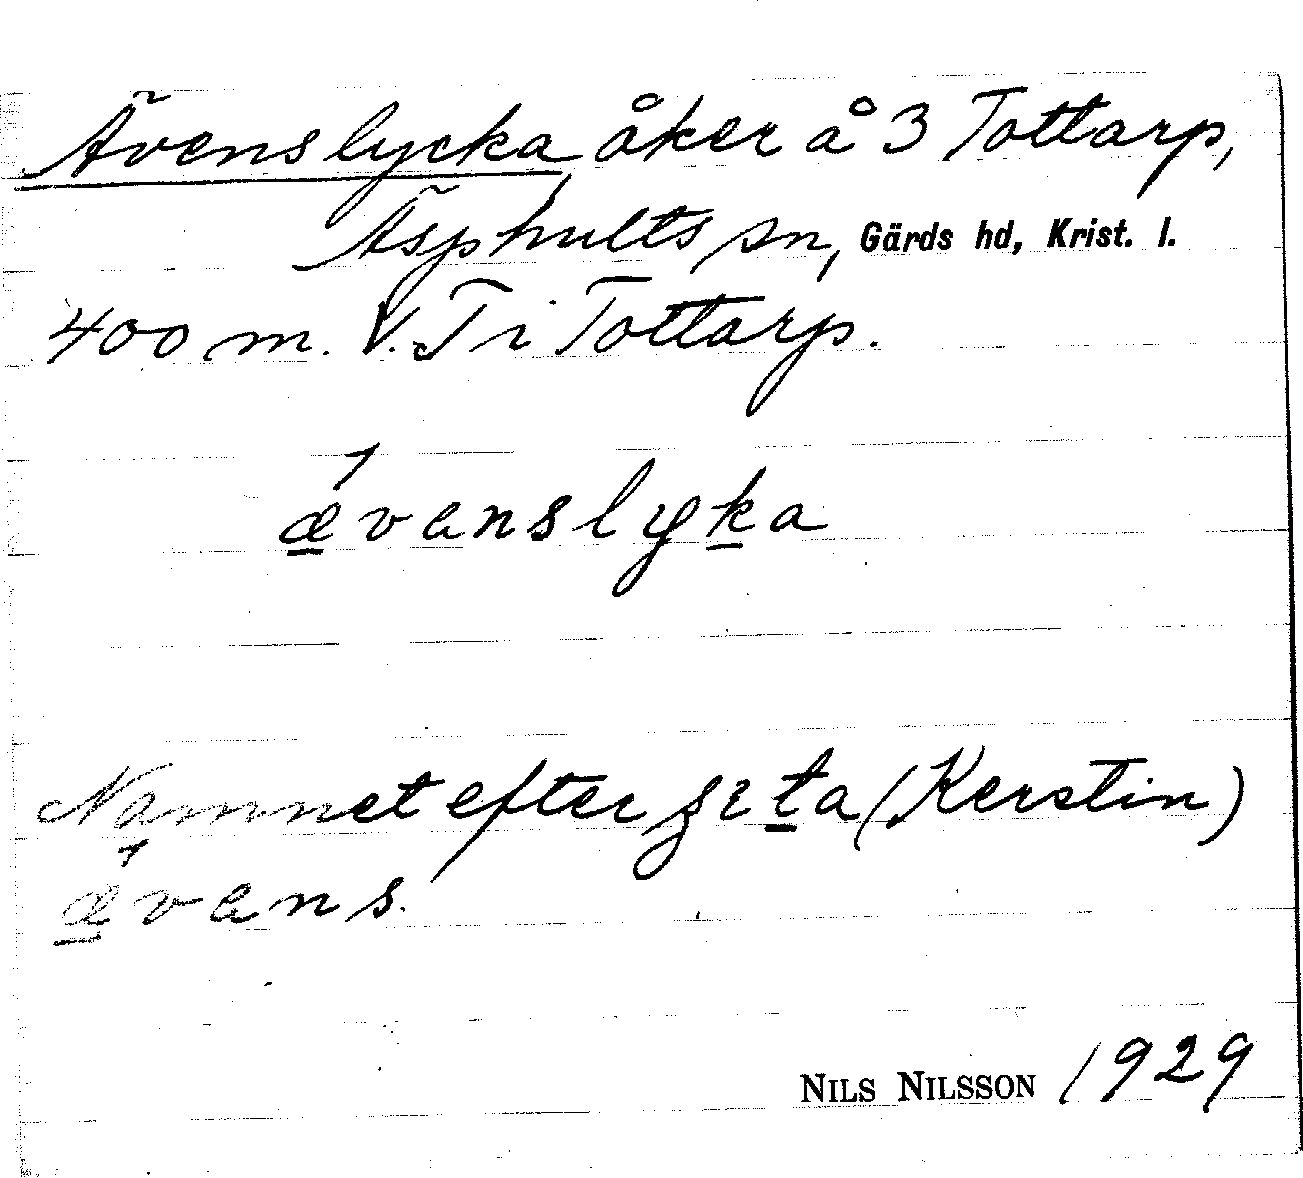 Ävenslycka åker å 3 Tottarp,
Äsphults sn, Gärds hd, Krist. l.
400 m. V. T i Tottarp.
ǽvanslyka
Namnet efter
ta (Kerstin)
ǽvens.
NILS NILSSON 1929